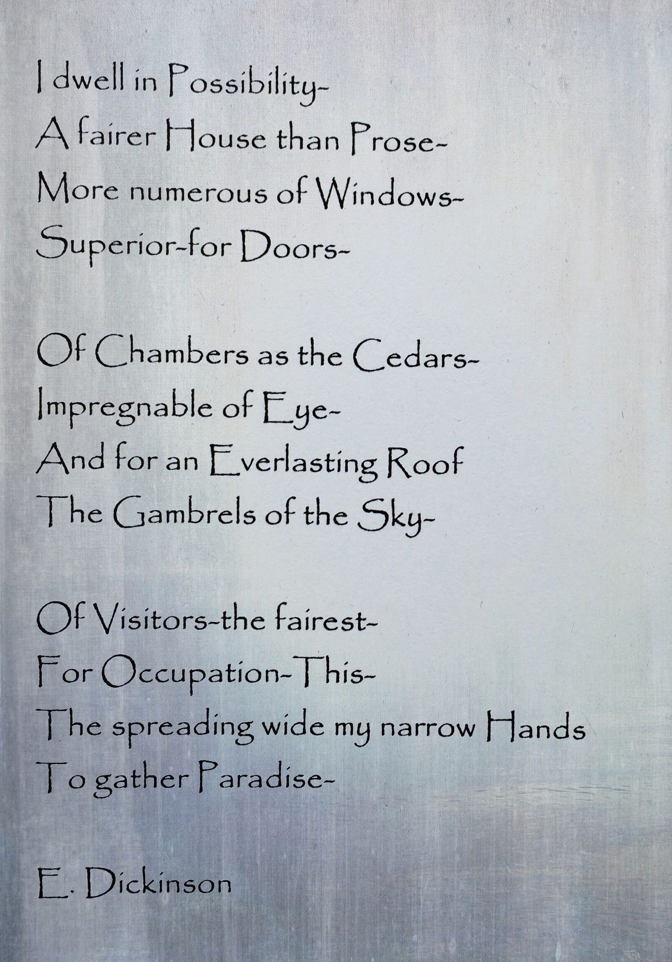 I dwell in Possibility-
A fairer House than Prose-
More numerous of Windows-
Superior-for Doors-
Of Chambers as the Cedars-
Impregnable of Eye-
And for an Everlasting Roof
The Gambrels of the Sky-
Of Visitors-the fairest-
For Occupation-This-
The spreading wide my narrow Hands
To gather Paradise-
E. Dickinson